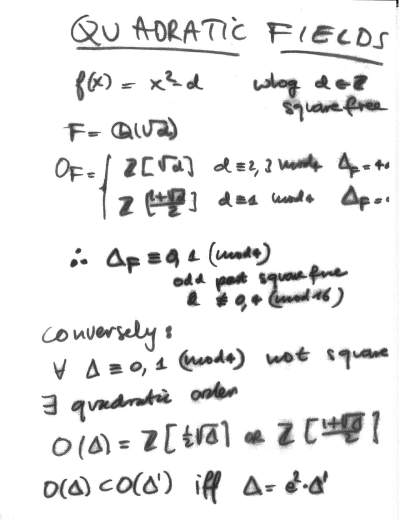 QUADRATIC FIELDS
f(x) = x²-d wlog d∈Z
squarefree
F = Q(√d)
O_F = { Z[√d] d≡2,3 mod 4 Δ_F = 4
Z[(1+√d)/2] d≡1 mod 4 Δ_F =
∴ Δ_F ≡ 0,1 (mod 4)
odd part squarefree
& ≢ 0,4 (mod 16)
Conversely:
∀ Δ ≡ 0,1 (mod 4) not square
∃ quadratic order
O(Δ) = Z[½√Δ] or Z[(1+√Δ)/2]
O(Δ) ⊂ O(Δ') iff Δ = e²·Δ'